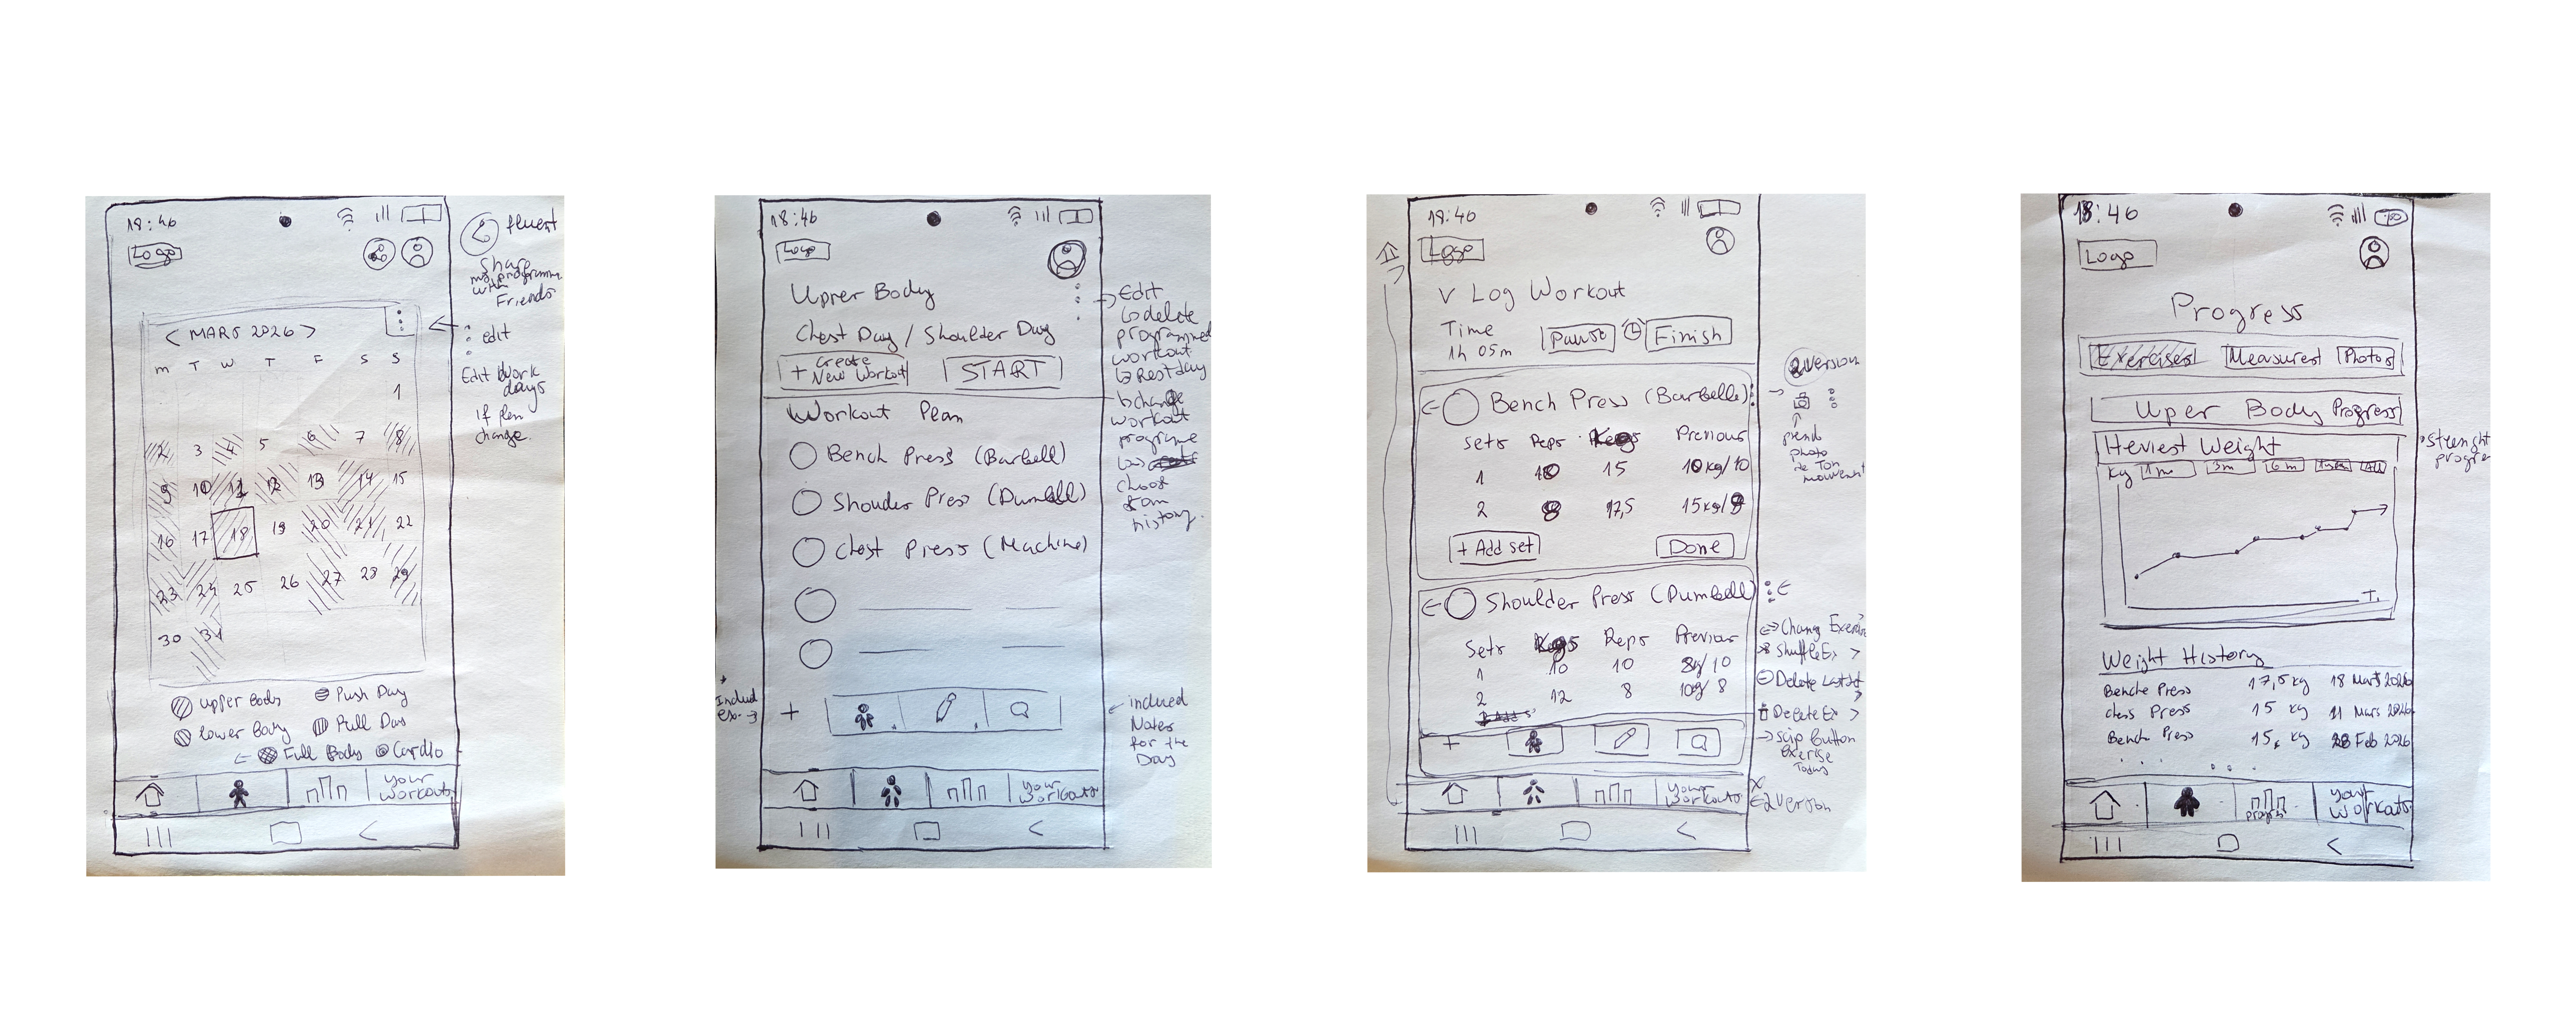 18:46
Logo
< MARS 2026 >
M T W T F S S
1
2 3 4 5 6 7 8
9 10 11 12 13 14 15
16 17 18 19 20 21 22
23 24 25 26 27 28 29
30 31
Upper Body
Push Day
Lower Body
Pull Day
Full Body
Cardio
your
workouts
Share
my programme
with
Friends
edit
Edit Work
days
if plan
change.
18:46
Logo
Upper Body
Chest Day / Shoulder Day
+ Create
New Workout
START
Workout Plan
Bench Press (Barbell)
Shouder Press (Dumbell)
Chest Press (Machine)
+
your
workouts
Edit
delete
programmed
workout
Rest day
change
workout
programe
choose
from
history.
Includ
ex.
included
Notes
for the
Day
18:46
Logo
V Log Workout
Time
1h 05m
Pause
Finish
Bench Press (Barbelle)
Sets Reps Kegs Previous
1 10 15 10kg/10
2 8 17,5 15kg/8
+ Add set
Done
Shoulder Press (Dumbell)
Sets Kegs Reps Previous
1 10 10 8kg/10
2 12 8 10kg/8
+
your
workouts
2 version
prend
photo
de Ton
mouvement
Change Exercise
Shuffle Ex >
Delete Last set
>
Delete Ex >
Skip Button
Exerise
Today
2 version
18:46
Logo
Progress
Exercises
Measures
Photos
Uper Body Progress
Heviest Weight
Kg 1m 3m 6m All
T.
Weight History
Benche Press 17,5 kg 18 Mars 2026
chess Press 15 kg 11 Mars 2026
Bench Press 15, kg 28 Feb 2026
progress
your
workouts